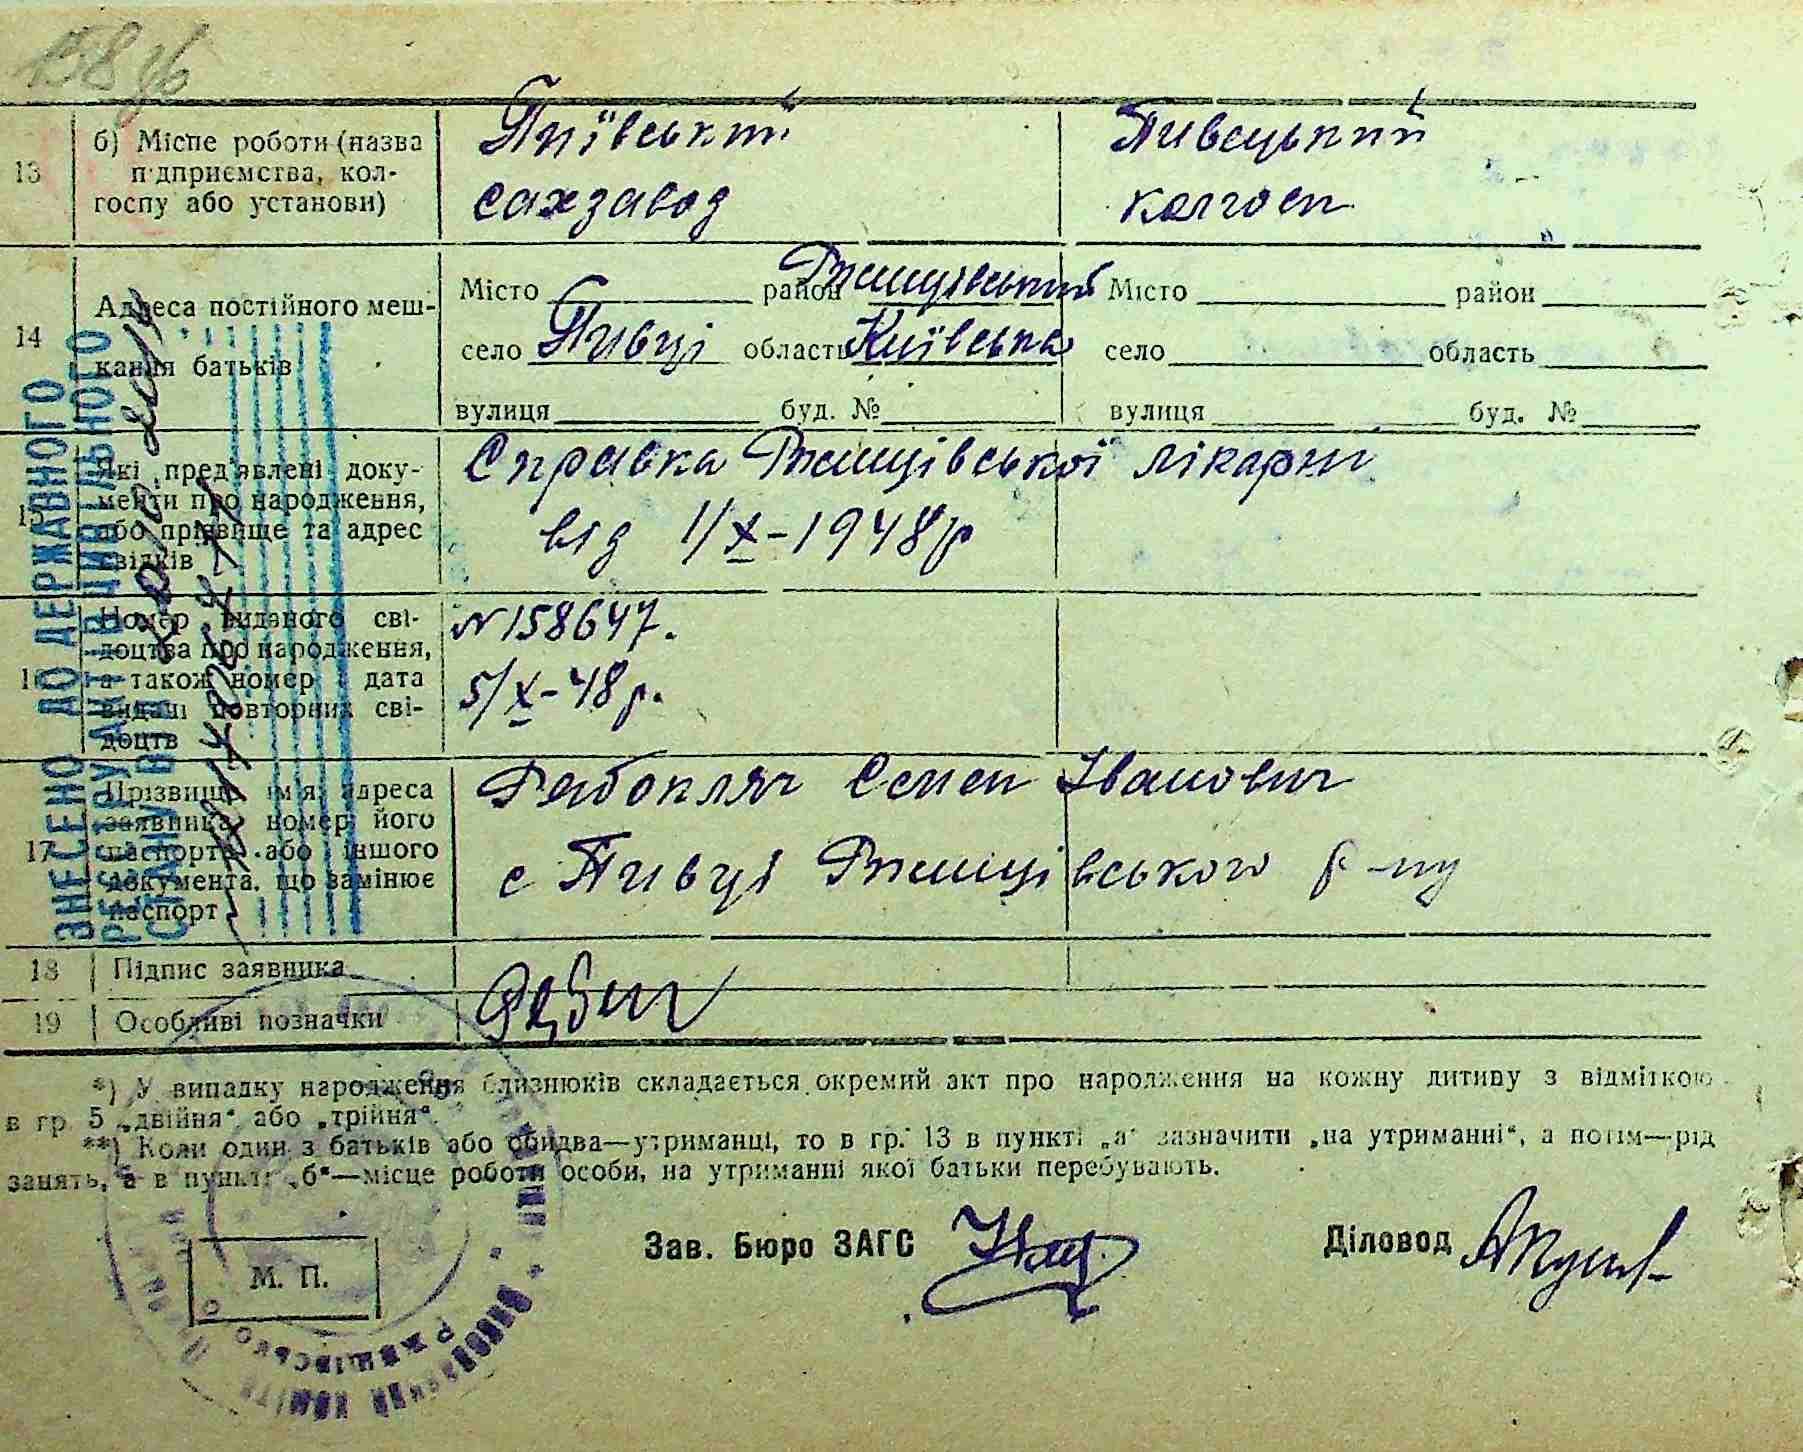 158 зв
13
б) Місце роботи (назва
підприємства, кол-
госпу або установи)
сахзавод
Пивецький
колгосп
14
Адреса постійного меш-
кання батьків
Місто район Ржищівський
село Пивці область Київська
вулиця буд. №
Місто район
село область
вулиця буд. №
15
Які пред'явлені доку-
менти про народження,
або прізвище та адрес
свідків
Справка Ржищівської лікарні
від 1/X-1948 р
16
Номер виданого сві-
доцтва про народження,
а також номер і дата
видачі повторних сві-
доцтв
№158647.
5/X-48 р.
17
Прізвище, ім'я, адреса
заявника, номер його
паспорта або іншого
документа, що замінює
паспорт
Семен Іванович
с Пивці Ржищівського р-ну
18
Підпис заявника
19
Особливі позначки
*) У випадку народження близнюків складається окремий акт про народження на кожну дитину з відміткою
в гр. 5 „двійня“ або „трійня“.
**) Коли один з батьків або обидва—утриманці, то в гр. 13 в пункті „а“ зазначити „на утриманні“, а потім—рід
занять, а в пункті „б“—місце роботи особи, на утриманні якої батьки перебувають.
Зав. Бюро ЗАГС
Діловод
М. П.
ВНЕСЕНО ДО ДЕРЖАВНОГО
РЕЄСТРУ АКТІВ ЦИВІЛЬНОГО
СТАНУ